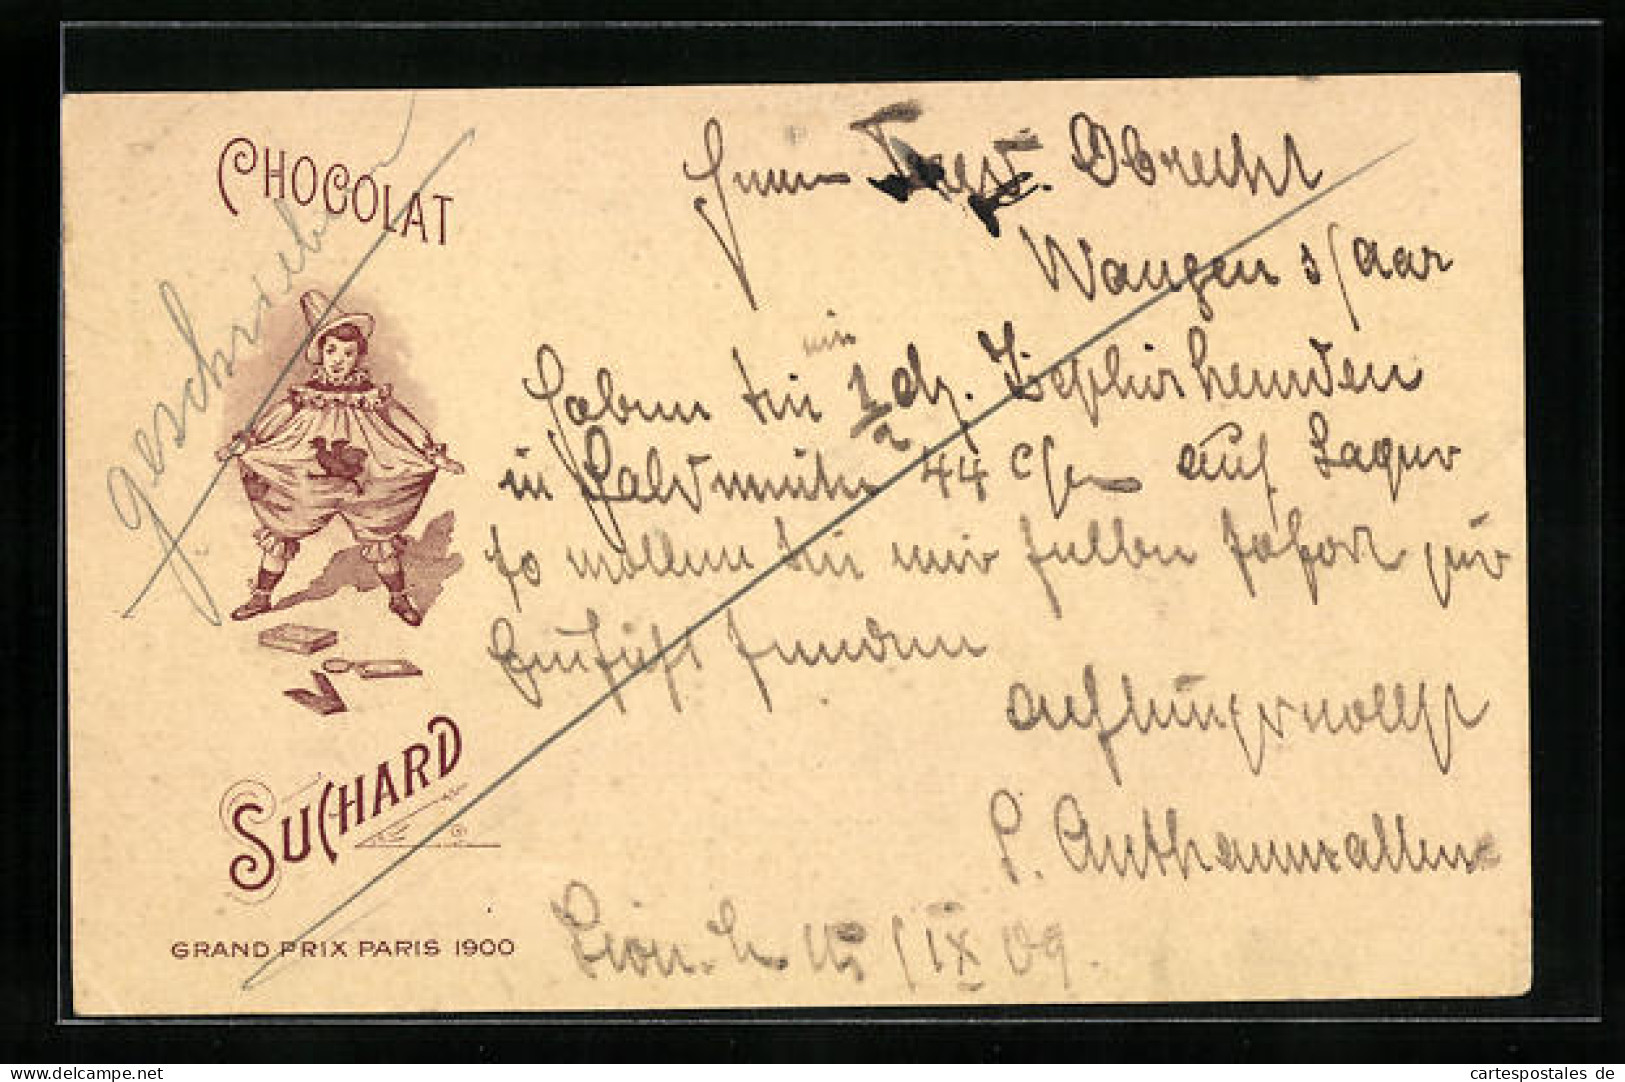 CHOCOLAT
SUCHARD
GRAND PRIX PARIS 1900
geschrieben
Herrn Obrecht
Wangen a/Aar
Haben Sie ein 1/2 dz. Zephirhemden
in 44 auf Lager
so wollen Sie mir selben sofort zur
Einsicht senden
achtungsvollst
Anthamatten
15/IX 09.
www.cartespostales.de
cartespostales de